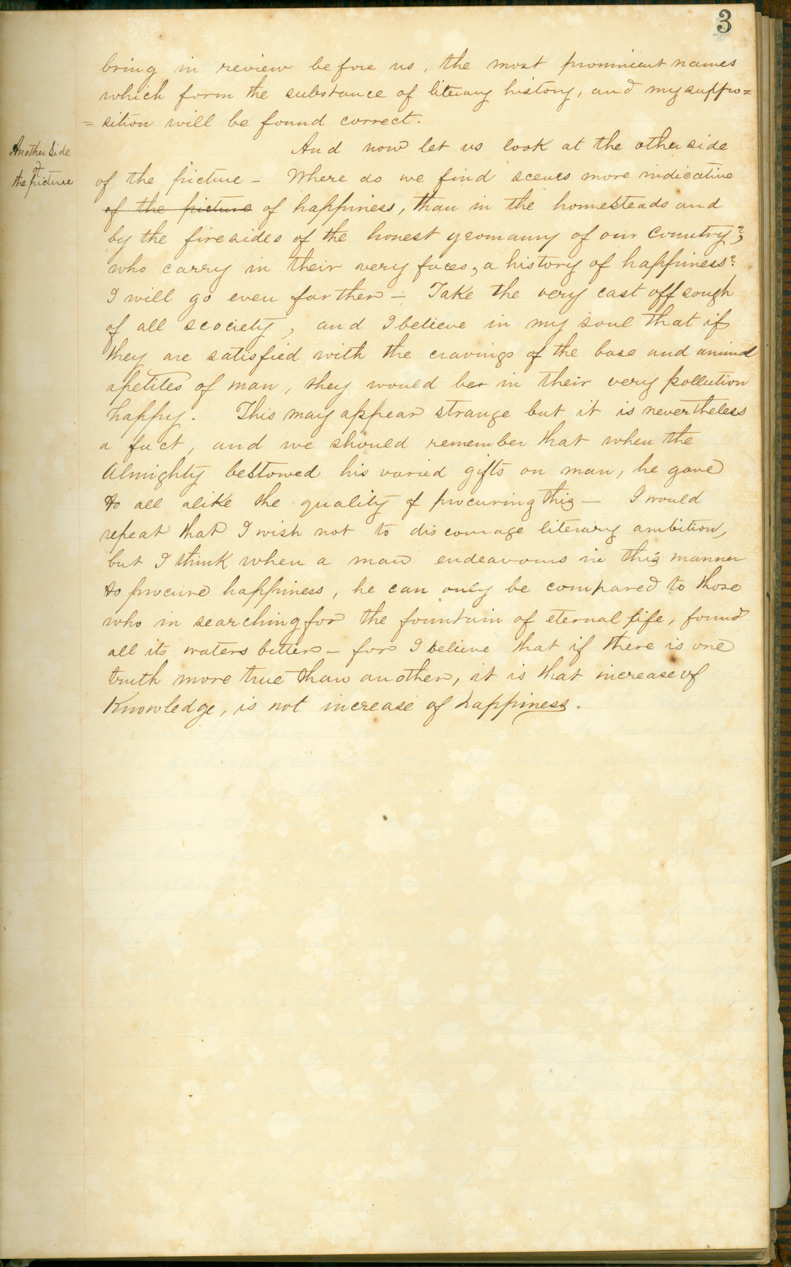 3
bring in review before us, the most prominent names
which form the substance of literary history, and my suppo=
=sition will be found correct.
Another Side
of
the picture
And now let us look at the other side
of the picture - Where do we find scenes more indicative
of the picture of happiness, than in the homesteads and
by the firesides of the honest yeomanry of our country?,
who carry in their very faces, a history of happiness?
I will go even farther - Take the very cast off
of all scociety, and I believe in my soul that if
they are satisfied with the cravings of the base and animal
apetites of man, they would be in their very pollution
happy. This may appear strange but it is nevertheless
a fact, and we should remember that when the
Almighty bestowed his varied gifts on man, he gave
to all alike the quality of procuring this - I would
repeat that I wish not to discourage literary ambition,
but I think when a man endeavours in this manner
to procure happiness, he can only be compared to those
who in searching for the fountain of eternal life, found
all its waters bitter - for I believe that if there is one
truth more true than another, it is that increase of
Knowledge, is not increase of happiness.